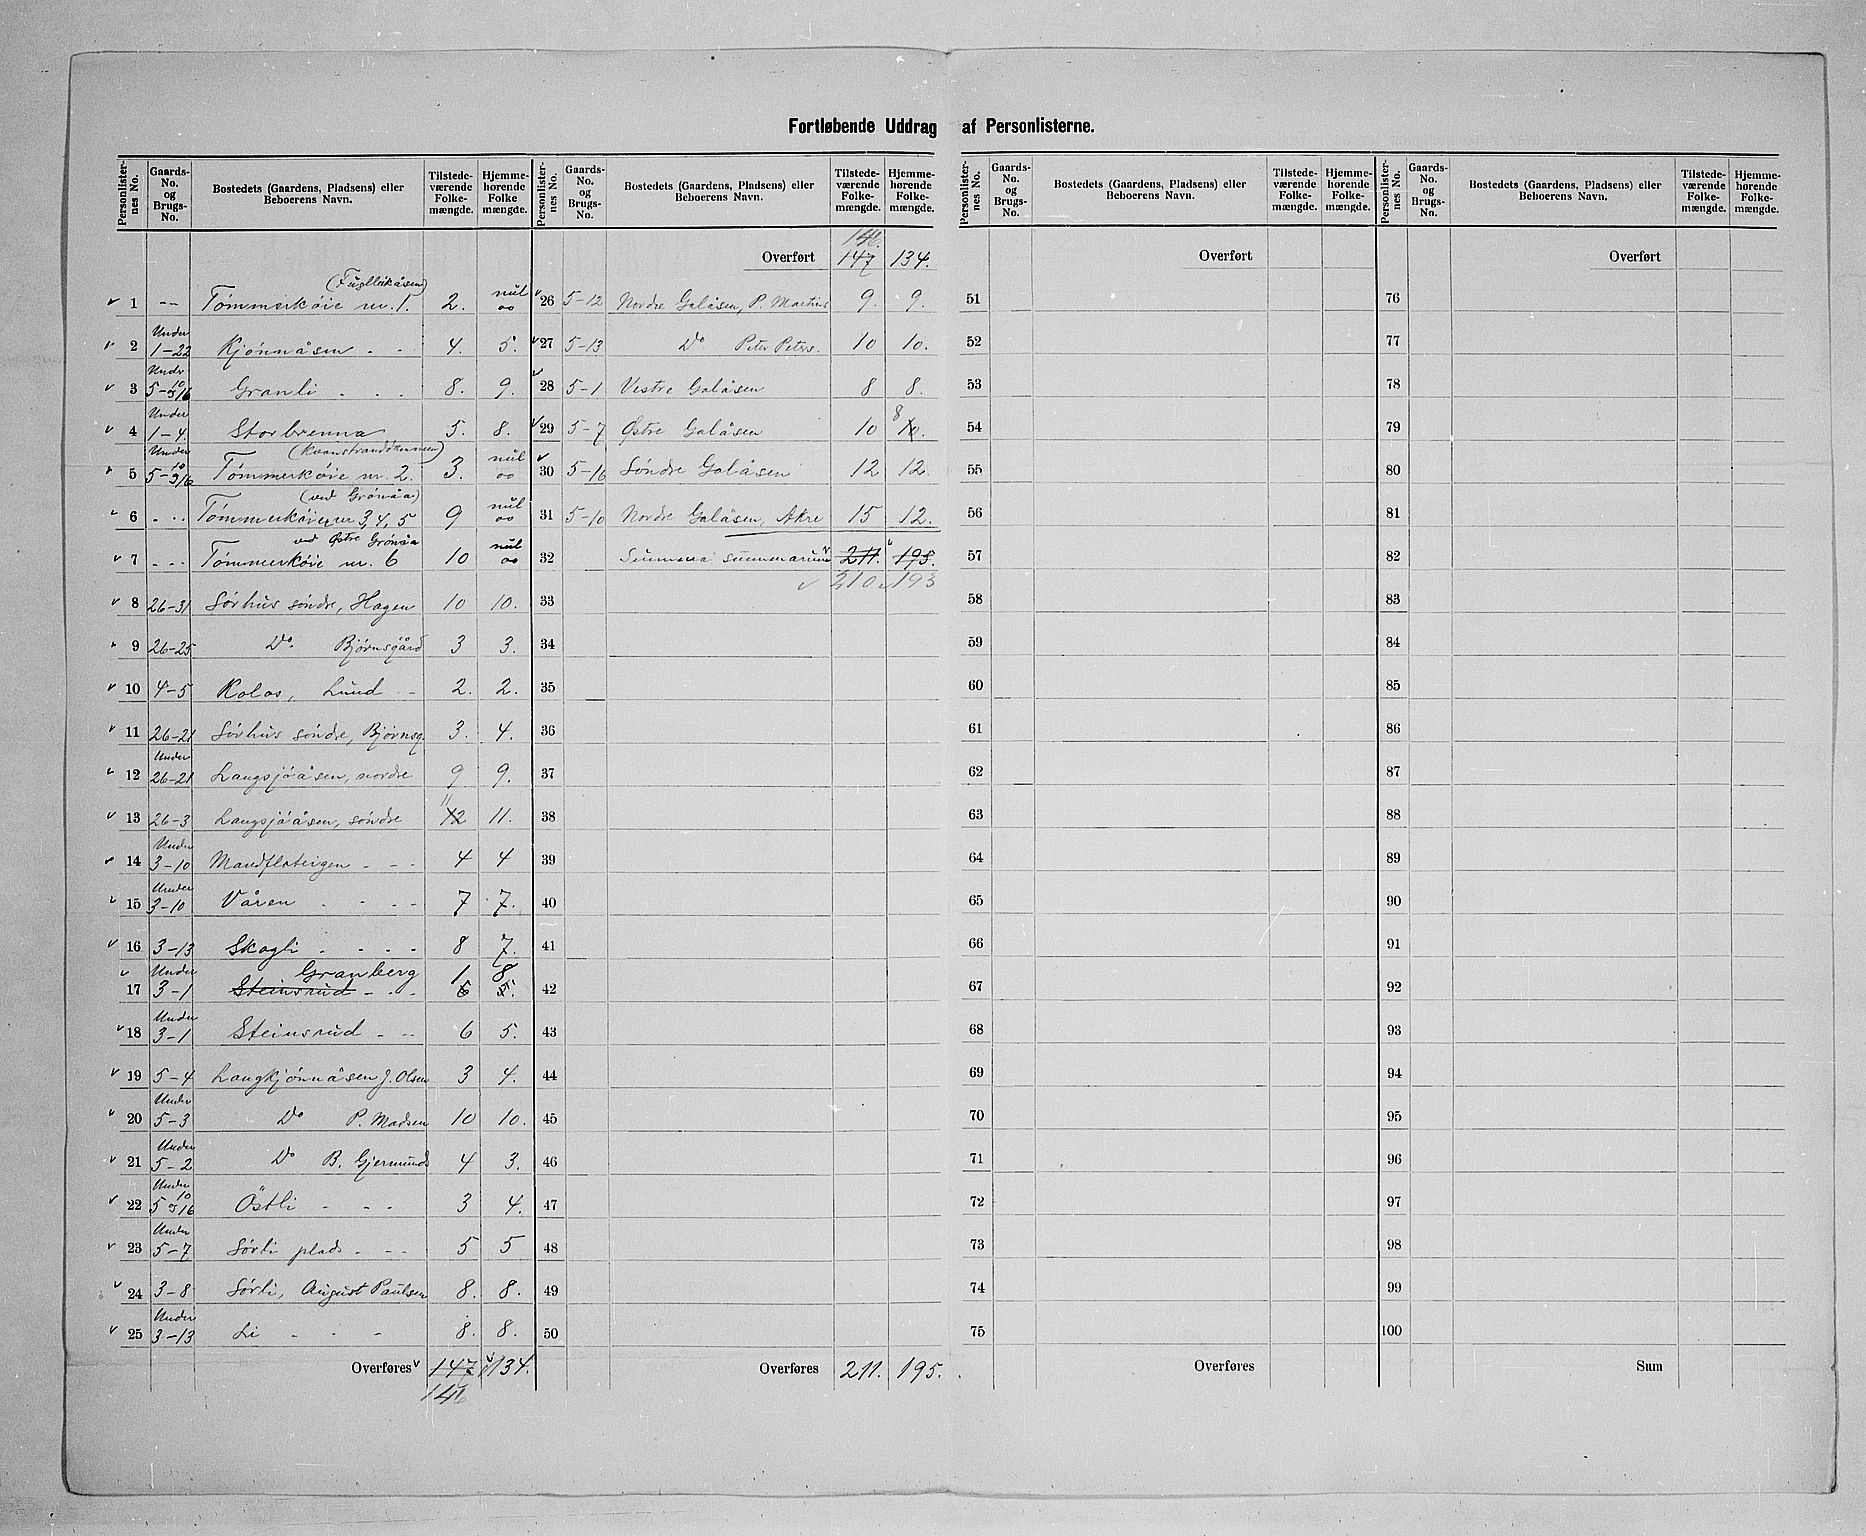 Fortløbende Uddrag af Personlisterne.
Personlister-nes No. | Gaards-No. og Brugs-No. | Bostedets (Gaardens, Pladsens) eller Beboerens Navn. | Tilstede-værende Folke-mængde. | Hjemme-hørende Folke mængde.
1 -- Tømmerkøie nr. 1. 2. nul oo
2 Under 1-22 Kjønnåsen - - 4. 5.
3 Under 5-10 og 16 Granli . . . 8. 9.
4 Under 1-4. Storbrenna 5. 8.
5 Under 5-10 og 16 Tømmerkøie nr. 2. 3. nul oo
(ved Grönåa)
6 - - - Tømmerkøier nr 3, 4, 5 9 nul oo
ved Østre Grönåa
7 - - - Tømmerkøie nr. 6 10 nul oo
8 26-31 Sørhus søndre, Hagen 10 10.
9 26-25 Do Bjørnsgård 3 3.
10 4-5 Kolos, Lund - - 2. 2.
11 26-21 Sørhus søndre, Bjørnsg. 3. 4.
12 Under 26-21 Langsjøåsen, nordre 9 9.
13 26-3 Langsjøåsen, søndre 11 12 11.
14 Under 3-10 Mandfloteigen - - - 4 4
15 Under 3-10 Våren - - - - 7 7.
16 3-13 Skogli - - - - 8 7.
Granberg 1. 8
17 Under 3-1 Steinsrud - - - 6 5.
18 Under 3-1 Steinsrud - - - 6 5.
19 5-4 Langkjønnåsen J. Olsen 3 4.
20 Under 5-3 Do P. Madsen 10 10.
21 Under 5-2 Do B. Gjermunds 4 3.
22 Under 5-10 og 16 Östli - - - 3 4.
23 Under 5-7 Sørli plads - - - 5 5
24 3-8 Sørli, August Paulsen 8. 8.
25 Under 3-13 Li - - - 8. 8.
Overføres 147 134.
146
Personlister-nes No. | Gaards-No. og Brugs-No. | Bostedets (Gaardens, Pladsens) eller Beboerens Navn. | Tilstede-værende Folke-mængde. | Hjemme-hørende Folke-mængde.
146.
Overført 147 134.
26 5-12 Nordre Galåsen, P. Martins 9. 9.
27 5-13 Do Peter Peters. 10 10.
28 5-1 Vestre Galåsen 8 8.
29 5-7 Østre Galåsen 10 8 10.
30 5-16 Søndre Galåsen 12 12.
31 5-10 Nordre Galåsen, Akre 15 12.
32 Summa summarum 211. 195.
210 193
33
34
35
36
37
38
39
40
41
42
43
44
45
46
47
48
49
50
Overføres 211. 195.
Personlister-nes No. | Gaards-No. og Brugs-No. | Bostedets (Gaardens, Pladsens) eller Beboerens Navn. | Tilstede-værende Folke-mængde. | Hjemme-hørende Folke-mængde.
Overført
51
52
53
54
55
56
57
58
59
60
61
62
63
64
65
66
67
68
69
70
71
72
73
74
75
Overføres
Personlister-nes No. | Gaards-No. og Brugs-No. | Bostedets (Gaardens, Pladsens) eller Beboerens Navn. | Tilstede-værende Folke-mængde. | Hjemme-hørende Folke-mængde.
Overført
76
77
78
79
80
81
82
83
84
85
86
87
88
89
90
91
92
93
94
95
96
97
98
99
100
Sum